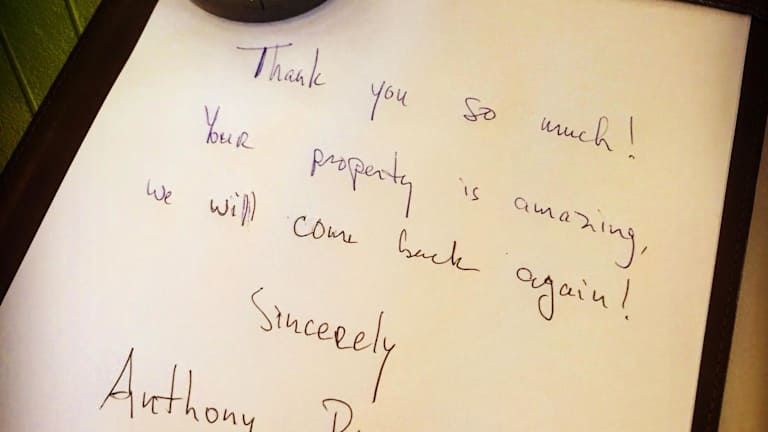 Thank you so much!
Your property is amazing,
we will come back again!
Sincerely
Anthony